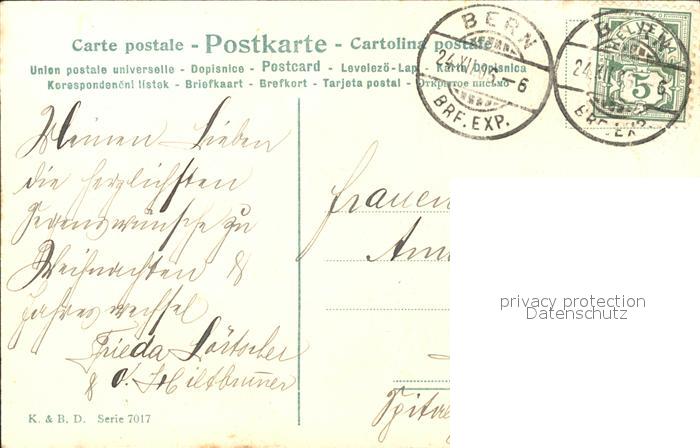 Carte postale - Postkarte - Cartolina postale
Union postale universelle - Dopisnice - Postcard - Levelező-Lap - Karta Dopisnica
Korespondenční listek - Briefkaart - Brefkort - Tarjeta postal - Открытое письмо
BERN
24.XII.07. - 6
BRF. EXP.
24.XII
6
BRF. EXP.
HELVETIA
5
Meinen Lieben
die herzlichsten
Segenswünsche zu
Weihnachten &
Jahreswechsel
Frieda Lörtscher
& d. Hiltbrunner
frauen
privacy protection
Datenschutz
K. & B. D. Serie 7017